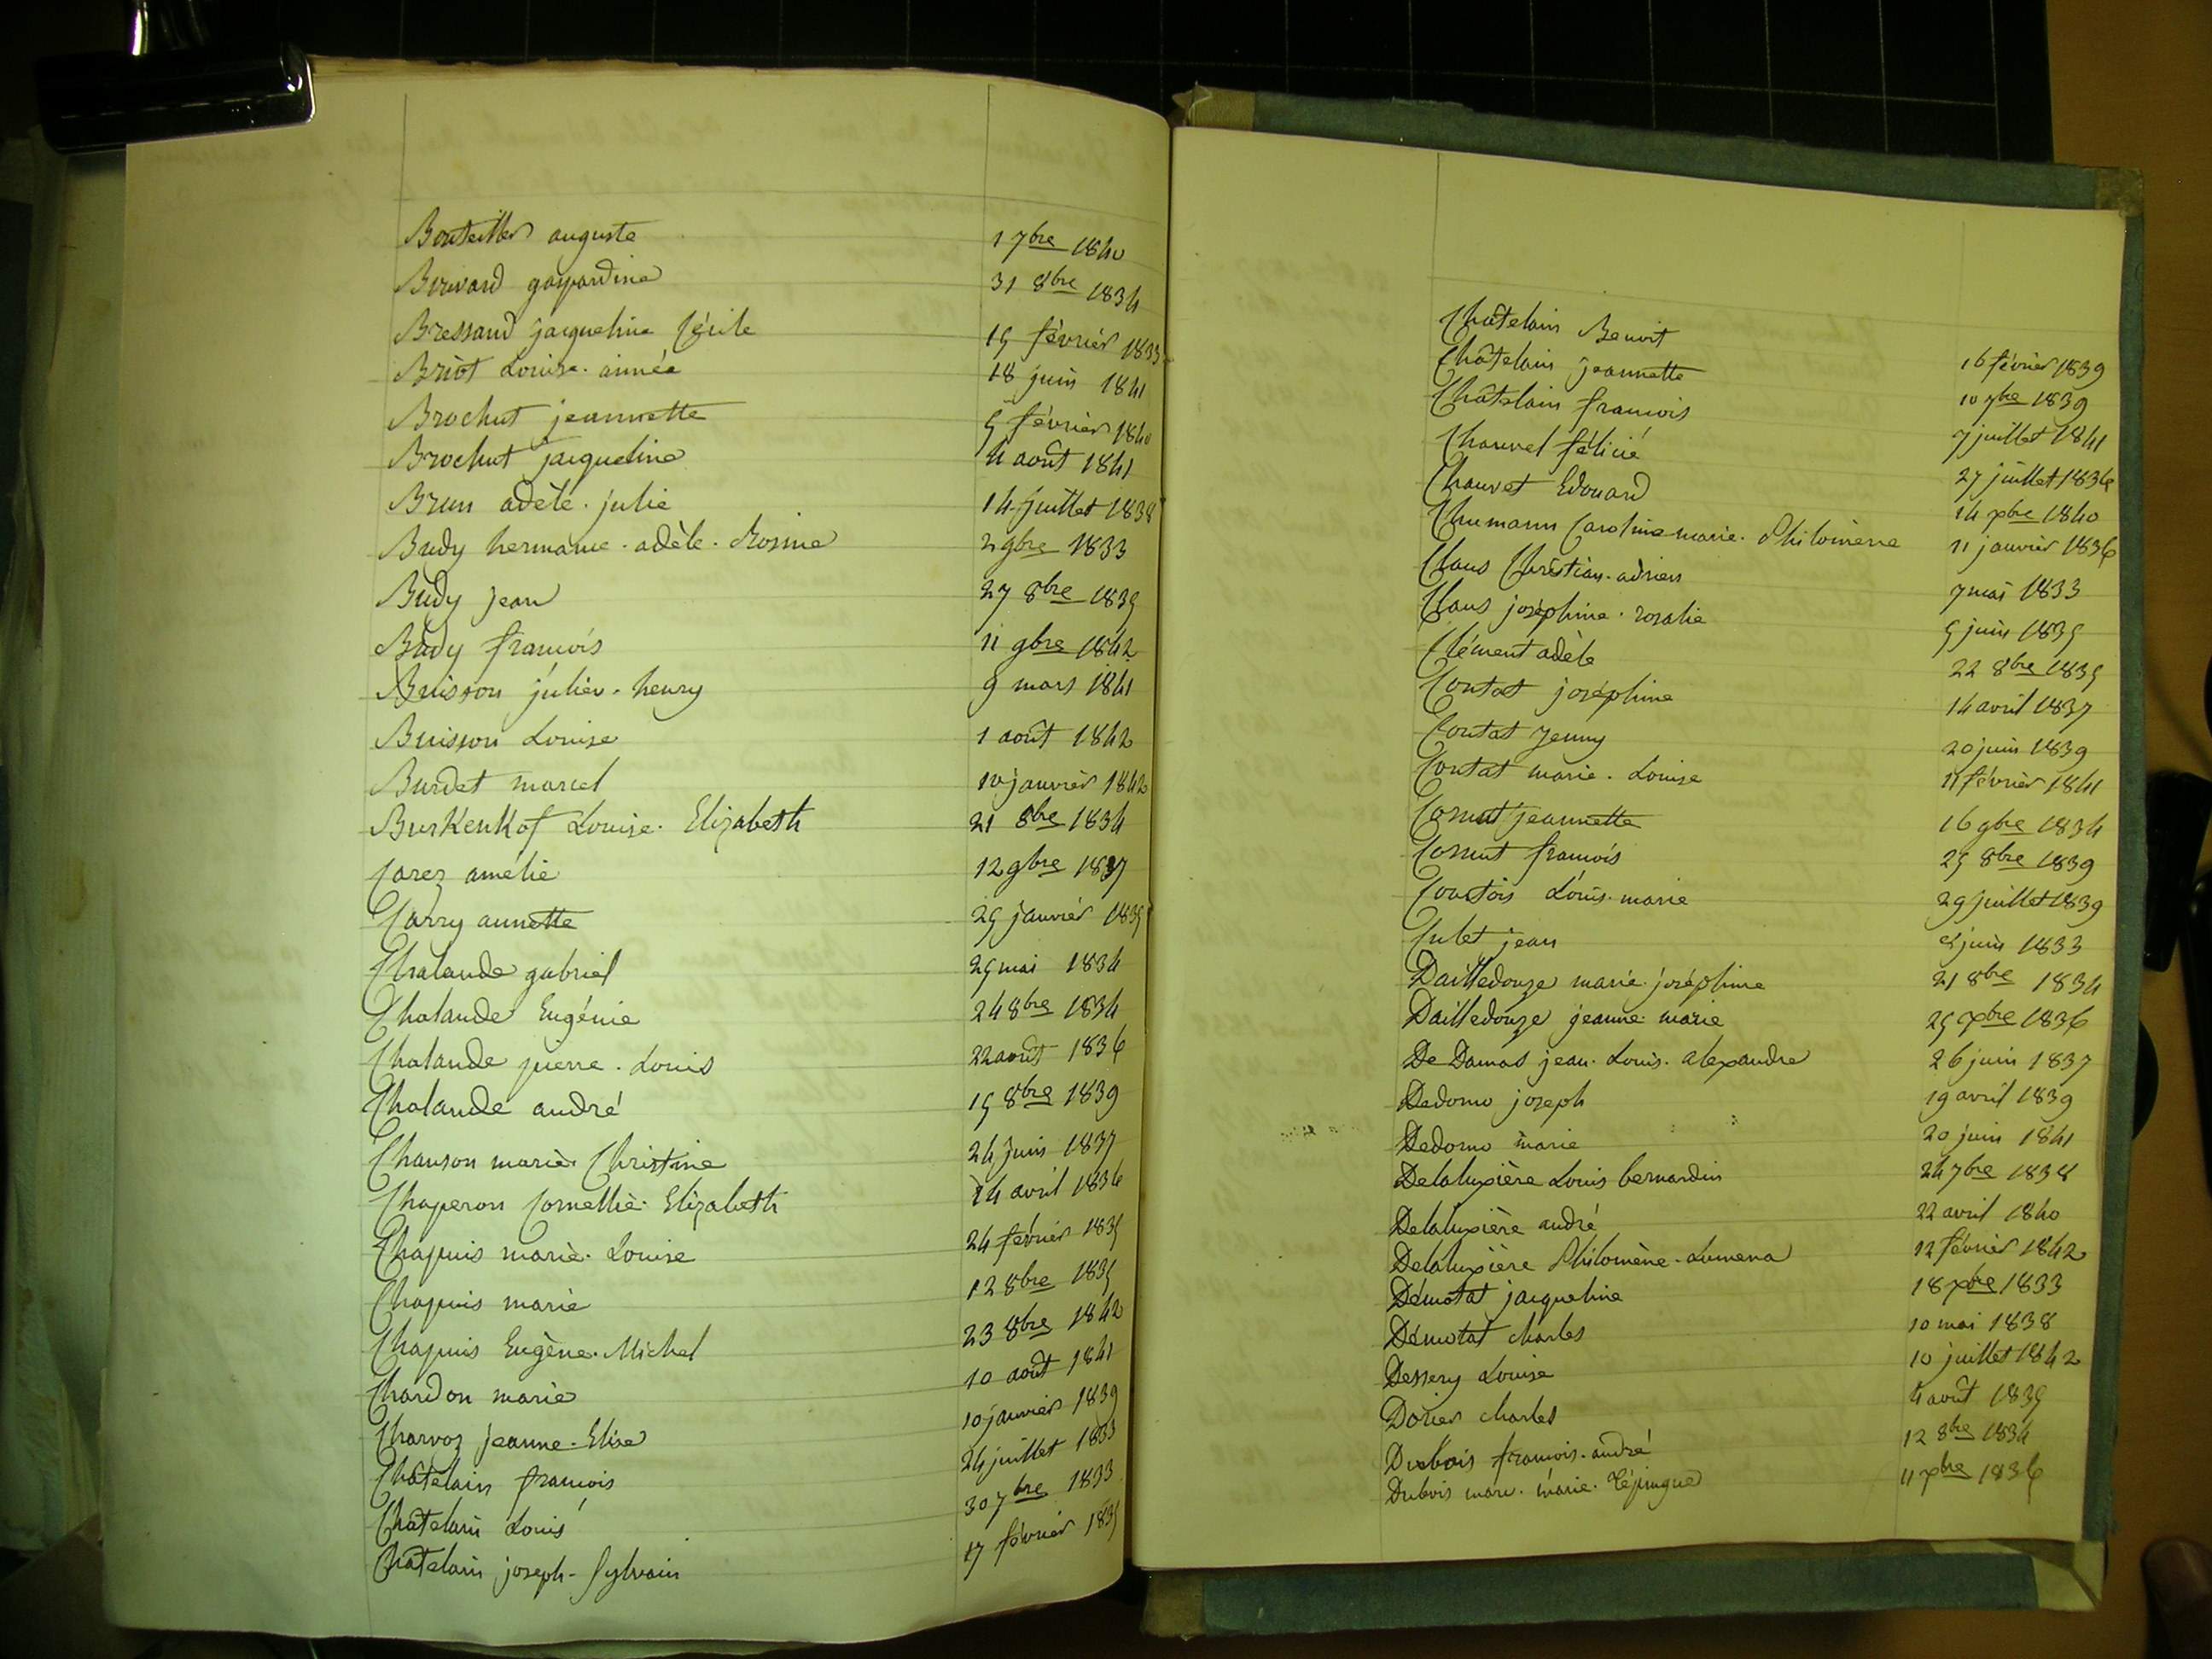 Bouteiller auguste 1 7bre 1840
Bouvard gaspardine 31 8bre 1834
Bressaud jacqueline Cécile 15 février 1833
Briot Louise aimée 18 juin 1841
Brochut jeannette 5 février 1840
Brochut jacqueline 4 août 1841
Brun adèle julie 14 juillet 1838
Budy hermanie adèle Rosine 2 9bre 1833
Budy jean 27 8bre 1835
Budy françois 11 9bre 1842
Buisson julien henry 9 mars 1841
Buisson Louise 1 août 1842
Burdet marcel 10 janvier 1842
Burkenkof Louise Elizabeth 21 8bre 1834
Carez amélie 12 9bre 1837
Carry annette 25 janvier 1835
Chalande gabriel 25 mai 1834
Chalande Eugénie 24 8bre 1834
Chalande pierre Louis 22 août 1836
Chalande andré 15 8bre 1839
Chanson marie Christine 24 juin 1837
Chaperon Cornellie Elizabeth 14 avril 1836
Chapuis marie Louise 24 février 1835
Chapuis marie 12 8bre 1835
Chapuis Eugène Michel 23 8bre 1842
Chardon marie 10 août 1841
Charvoz jeanne Elise 10 janvier 1839
Châtelain françois 24 juillet 1833
Châtelain Louis 30 7bre 1833
Châtelain joseph Sylvain 17 février 1835
Châtelain Benoit 16 février 1839
Châtelain jeannette 10 7bre 1839
Châtelain françois 7 juillet 1841
Chauvet félicie 27 juillet 1836
Chauvet Edouard 14 xbre 1840
Chumann Caroline marie Philomène 11 janvier 1836
Claus Christian adrien 7 mai 1833
Claus joséphine rosalie 5 juin 1835
Clément adèle 22 8bre 1835
Contat joséphine 14 avril 1837
Contat jenny 20 juin 1839
Contat marie Louise 11 février 1841
Cornut jeannette 16 9bre 1834
Cornut françois 25 8bre 1839
Courtois Louis marie 29 juillet 1839
Culet jean 8 juin 1833
Dailledouze marie joséphine 21 8bre 1834
Dailledouze jeanne marie 25 xbre 1836
De Damas jean Louis alexandre 26 juin 1837
Dedomo joseph 19 avril 1839
Dedomo marie 20 juin 1841
Delaluxière Louis bernardin 24 7bre 1838
Delaluxière andré 22 avril 1840
Delaluxière Philomène Lumena 12 février 1842
Démotat jacqueline 18 xbre 1833
Démotat charles 10 mai 1838
Dessery Louise 10 juillet 1842
Dorier charles 4 août 1835
Dubois françois andré 12 8bre 1834
Dubois marie 11 xbre 1836